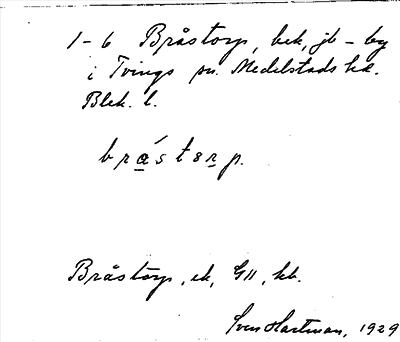 1-6 Bråstorp, bek, jb - by
i Tvings sn. Medelstads hd.
Blek. l.
brástorp.
Bråstorp, ek, GII, kb.
Sven Hartman, 1929